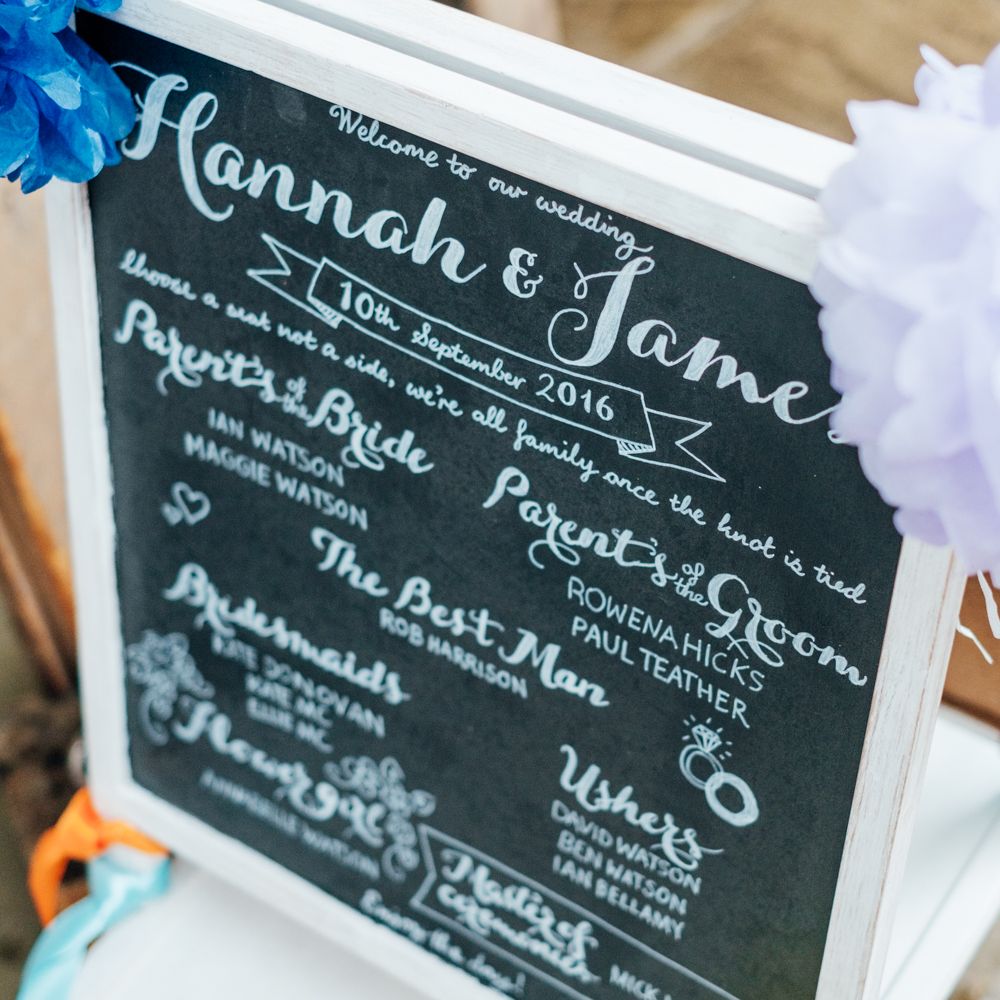 Welcome to our wedding
Hannah & Jame
10th September 2016
Choose a seat not a side, we're all family once the knot is tied
Parent's of the Bride
IAN WATSON
MAGGIE WATSON
Parent's of the Groom
ROWENA HICKS
PAUL TEATHER
The Best Man
ROB HARRISON
Bridesmaids
KATE DONOVAN
KATE MC
ELLIE MC
Flower gal
ANNABELLE WATSON
Ushers
DAVID WATSON
BEN WATSON
IAN BELLAMY
Master of
ceremonies
MICK
Enjoy the day!